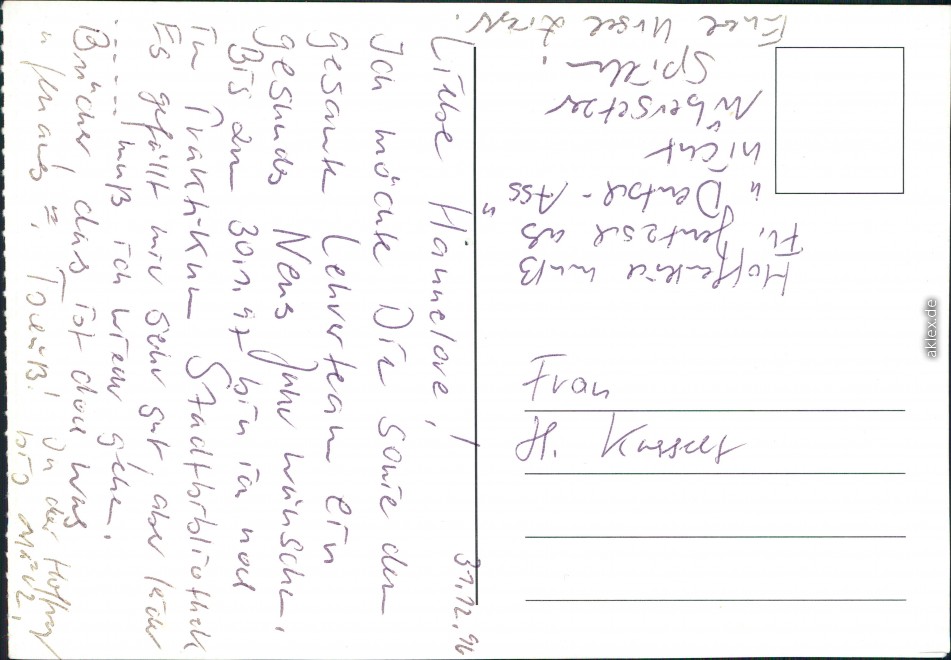 31.12.96
Liebe Hannelore!
Ich möchte Dir sowie den
gesamt Lehrerteam ein
gesundes Neus Jahr wünschen.
Bis zm 30.1.97 bin in noch
im Praktikum Stadtbibliothek
Es gefällt mir sehr gut, aber leider
...... muß ich wieder gehen.
Bücher, das ist doch was
In der Hoffnung
bis März!
Hoffentlich muß
Fr. als
"Deutsch-Ass"
nicht
Übersetzer
Spielen.
Eure Ursel
Frau
H.
aklex.de